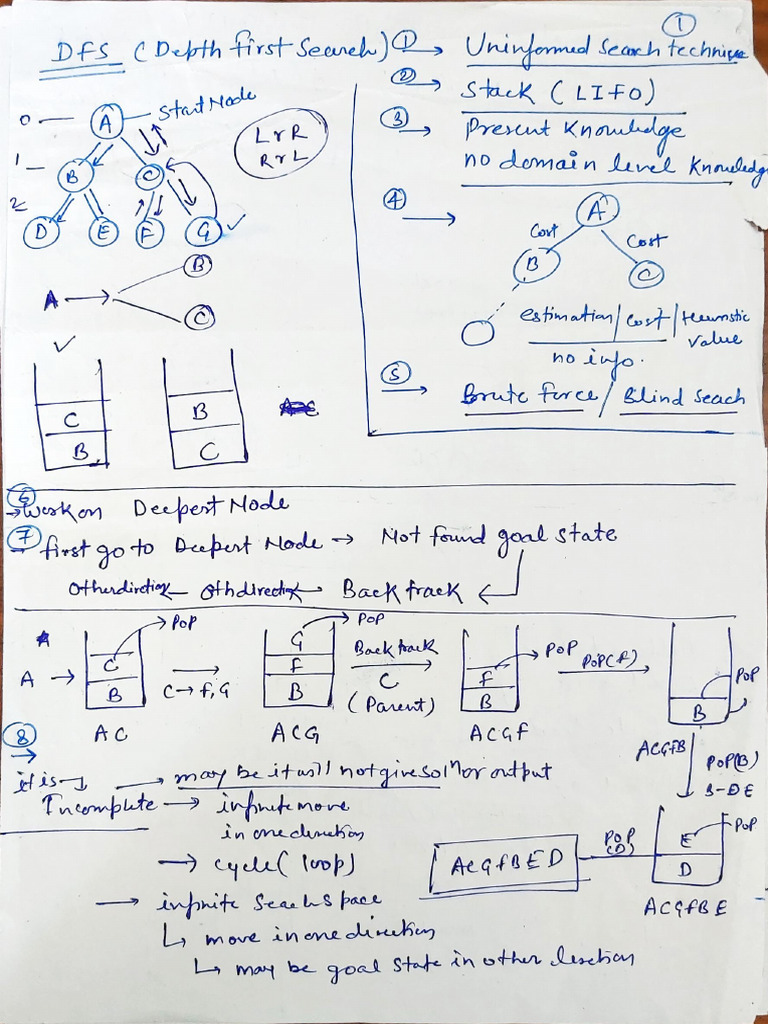 ①
DFS (Depth first Search)
① → Uninformed search technique
② → Stack (LIFO)
③ → Present Knowledge
no domain level Knowledge
④ →
A
Cost Cost
B C
estimation/cost/Heuristic value
no info.
⑤ → Brute force / Blind seach
0 — A — Start Node
1 — B C
2 D E F G ✓
L r R
R r L
A → B
C
✓
C B
B C
⑥ → work on Deepert Node
⑦ → first go to Deepert Node → Not found goal state
Otherdirection ← Othdirection ← Back track ←
A → C → POP
B
AC
C → F, G
G → POP
F
B
ACG
Back track
C
(Parent)
F → POP
B
ACGF
POP(F)
B POP
ACGFB
POP(B)
B-DE
E POP
D
ACGFBE
POP
(D)
ACGFBED
⑧ →
it is → may be it will not give solⁿ or output
Incomplete → infinite move
in one direction
→ cycle (loop)
→ infinite Seach Space
↳ move in one direction
↳ may be goal state in other direction